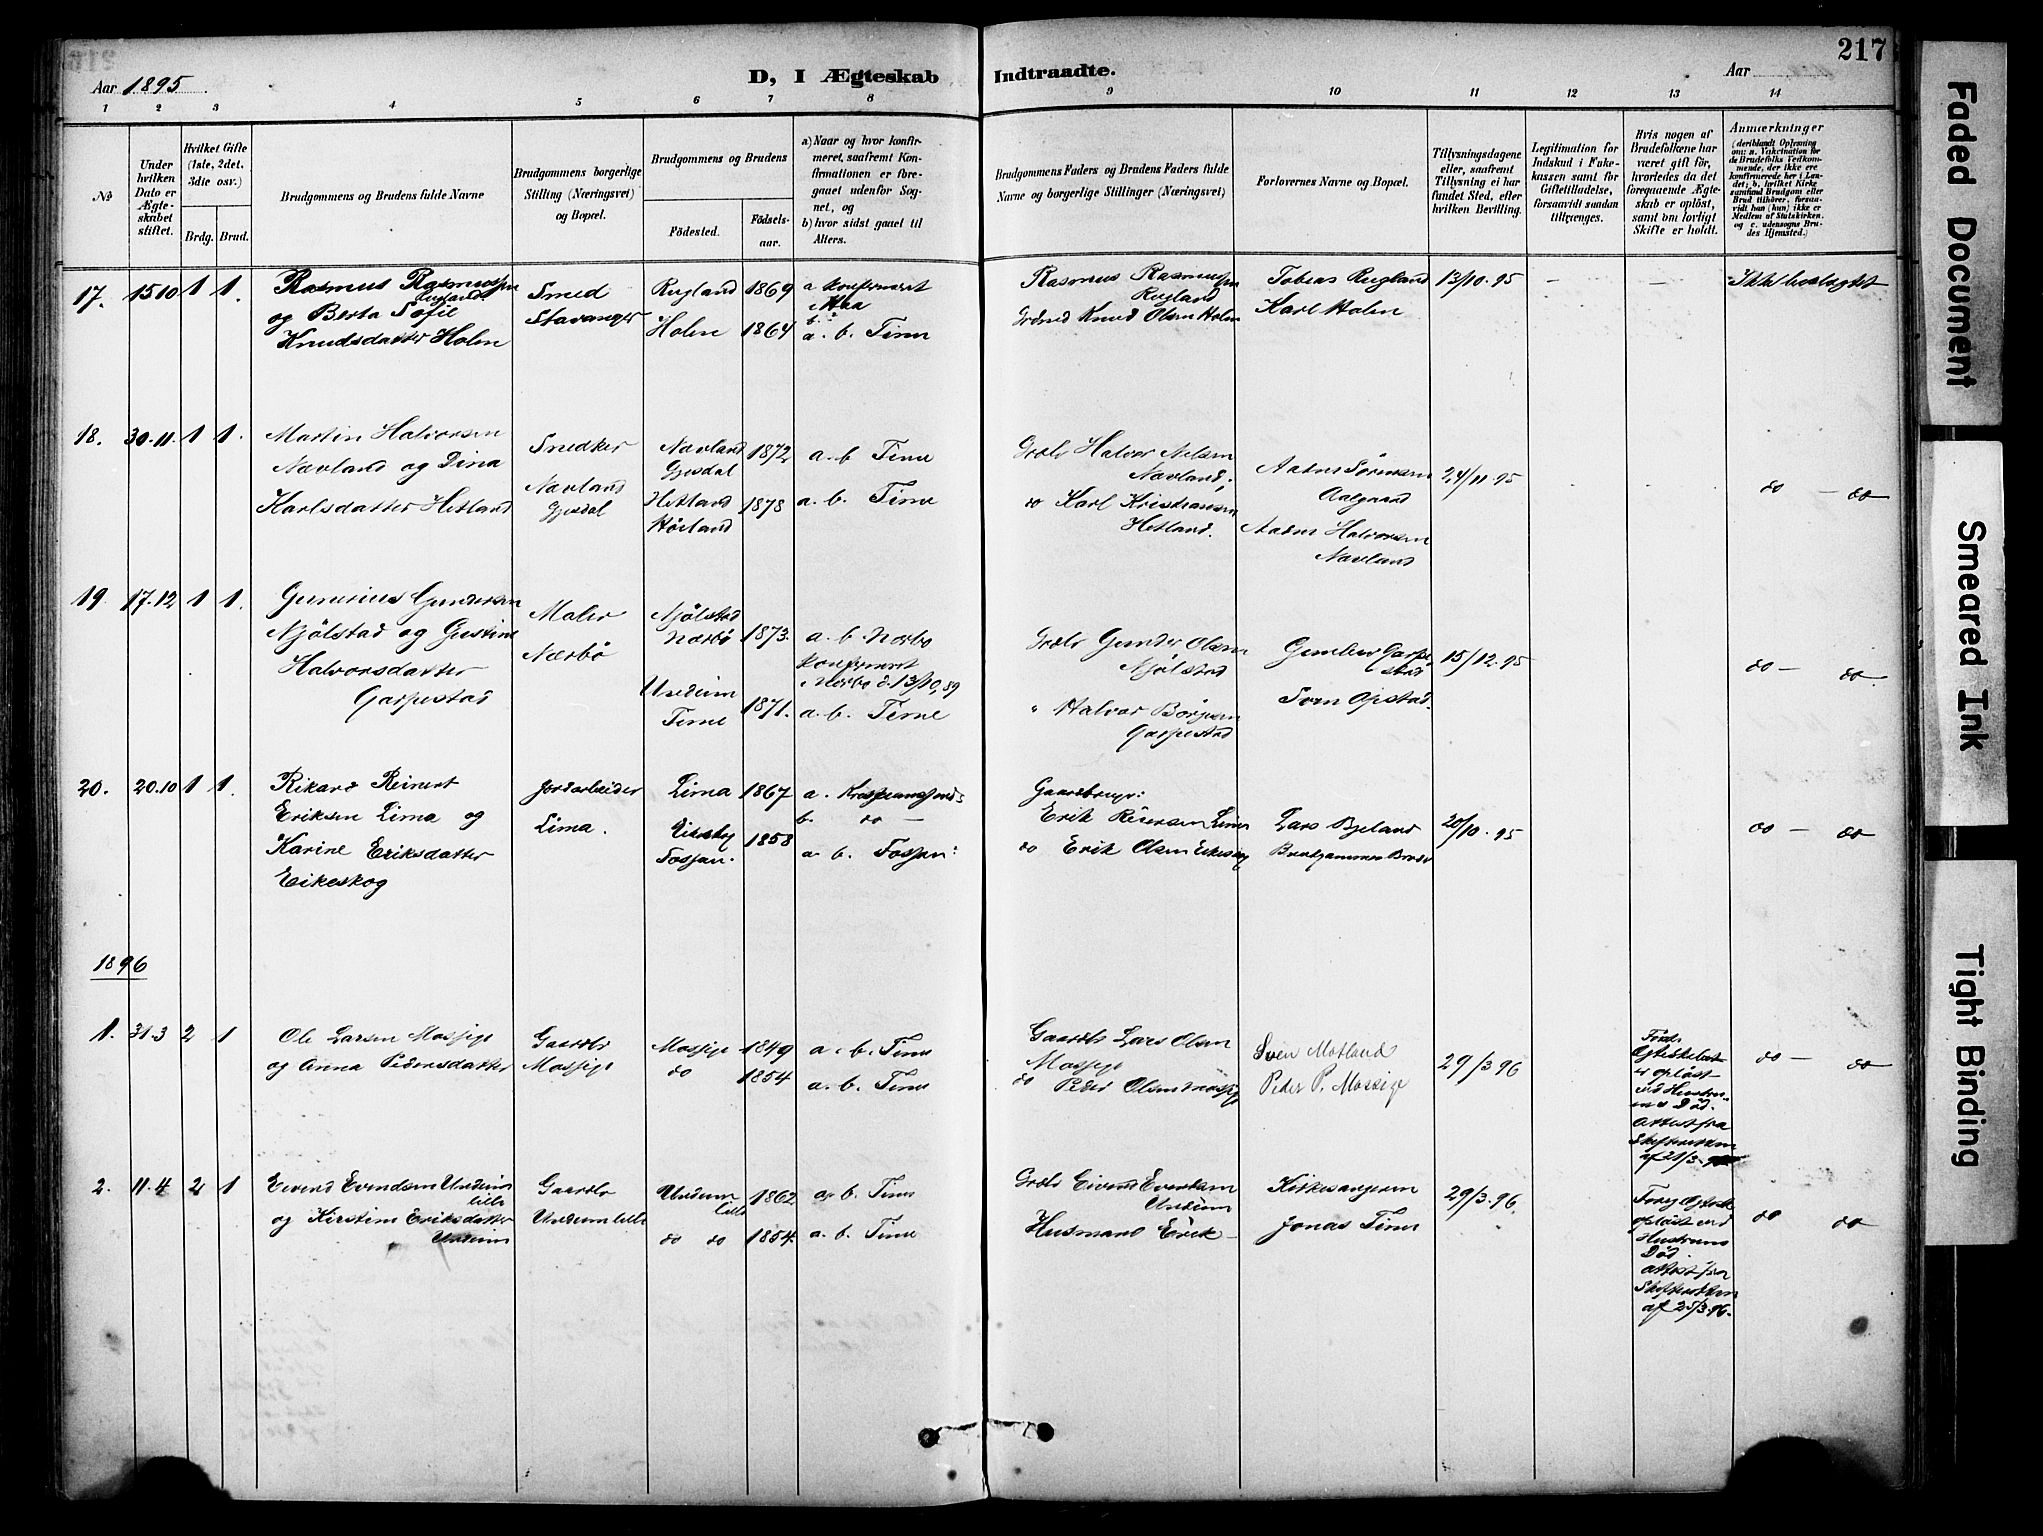 217
Aar 1895
D, I Ægteskab Indtraadte.
Aar
1 2 3 4 5 6 7 8 9 10 11 12 13 14
№
Under hvilken Dato er Ægteskabet stiftet.
Hvilket Gifte (1ste, 2det, 3die osv.)
Brdg. Brud.
Brudgommens og Brudens fulde Navne
Brudgommens borgerlige Stilling (Næringsvei) og Bopæl.
Brudgommens og Brudens
Fødested.
Fødselsaar.
a) Naar og hvor konfirmeret, saafremt Konfirmationen er foregaaet udenfor Sognet, og
b) hvor sidst gaaet til Alters.
Brudgommens Faders og Brudens Faders fulde Navne og borgerlige Stillinger (Næringsvei)
Forlovernes Navne og Bopæl.
Tillysningsdagene eller, saafremt Tillysning ei har fundet Sted, efter hvilken Bevilling.
Legitimation for Indskud i Enkekassen samt for Giftetilladelse, forsaavidt saadan tiltrænges.
Hvis nogen af Brudefolkene har været gift før, hvorledes da det foregaaende Ægteskab er opløst, samt om lovligt Skifte er holdt.
Anmærkninger
(deriblandt Oplysning om: a. Vakcination for de Brudefolks Vedkommende, der ikke ere konfirmerede her i Landet; b. hvilket Kirkesamfund Brudgom eller Brud tilhører, forsaavidt han (hun) ikke er Medlem af Statskirken, og c. udensogns Brudes Hjemsted.)
17. 15 10 1 1.
Rasmus Rasmussen
Rugland
og Berta Sofie
Knudsdatter Holen
Smed
Stavanger
Rugland 1869
Holen 1864
a konfirmeret
b.
a. b. Time
Rasmus Rasmussen
Rugland
Knud Olsen Holen
Tobias Rugland
Karl Holen
13/10. 95
–
–
Ikke beslægtet
18. 30.11. 1 1.
Martin Halvorsen
Nævland og Dina
Karlsdatter Hetland
Snedker
Nævland
Gjesdal
Nævland 1872
Gjesdal
Hetland 1878
Høiland
a. b Time
a. b. Time
Halvor Nelsen
Nævland,
do Karl Kristiansen
Hetland.
Sørensen
Aalgaard
Halvorsen
Nævland
24/11 95
do – do
19. 17.12 1 1.
Gunerius Gundersen
Njølstad og Gustine
Halvorsdatter
Garpestad
Maler
Nærbø
Njølstad
Nærbø 1873.
Undeim
Time 1871.
a. b. Nærbø
konfirmeret
i Nærbø d. 13/10, 89
a. b. Time
Gunder Olsen
Njølstad
" Halvor Børgesen
Garpestad
Garpestad
Sven Opstad.
15/12. 95
do – do
20. 20.10 1 1.
Rikard Reinert
Eriksen Lima og
Karine Eriksdatter
Eikeskog
Jordarbeider
Lima.
Lima 1867
Eikeskog 1858
Fossan.
a.
b. do –
a. b. Fossan:
Gaardbruger:
Erik Reiersen Lima
do Erik Olsen Eikeskog
Lars Bjeland
Brudgommens Broder
20/10. 95
do – do
1896
1. 31.3 2 1
Ole Larsen Mossige
og Anna Pedersdatter
Gaardbr
Mossige
Mossige 1849
do 1854
a. b. Time
a. b. Time
Gaardbr Lars Olsen
Mossige
do Peder Olsen Mossige
Sven Motland
Peder P. Mossige
29/3 96
Ægteskabet
er opløst
ved Hustru-
ens Død.
Attest fra
Skifteretten
af 21/3.96
do – do
2. 11.4 2 1
Eivend Evendsen Undeim
lille
og Kirstine Eriksdatter
Undeim
Gaardbr
Undeim lille
Undeim 1862
lille
do do 1854.
a. b. Time
a. b. Time
Eivend Evensen
Undeim
Husmand Erik –
Kirkesangeren
Jonas Time
29/3.96
opløst ved
Hustruens
Død.
Attest fra
Skifteretten
af 25/3.96.
do do
Faded Document
Smeared Ink
Tight Binding